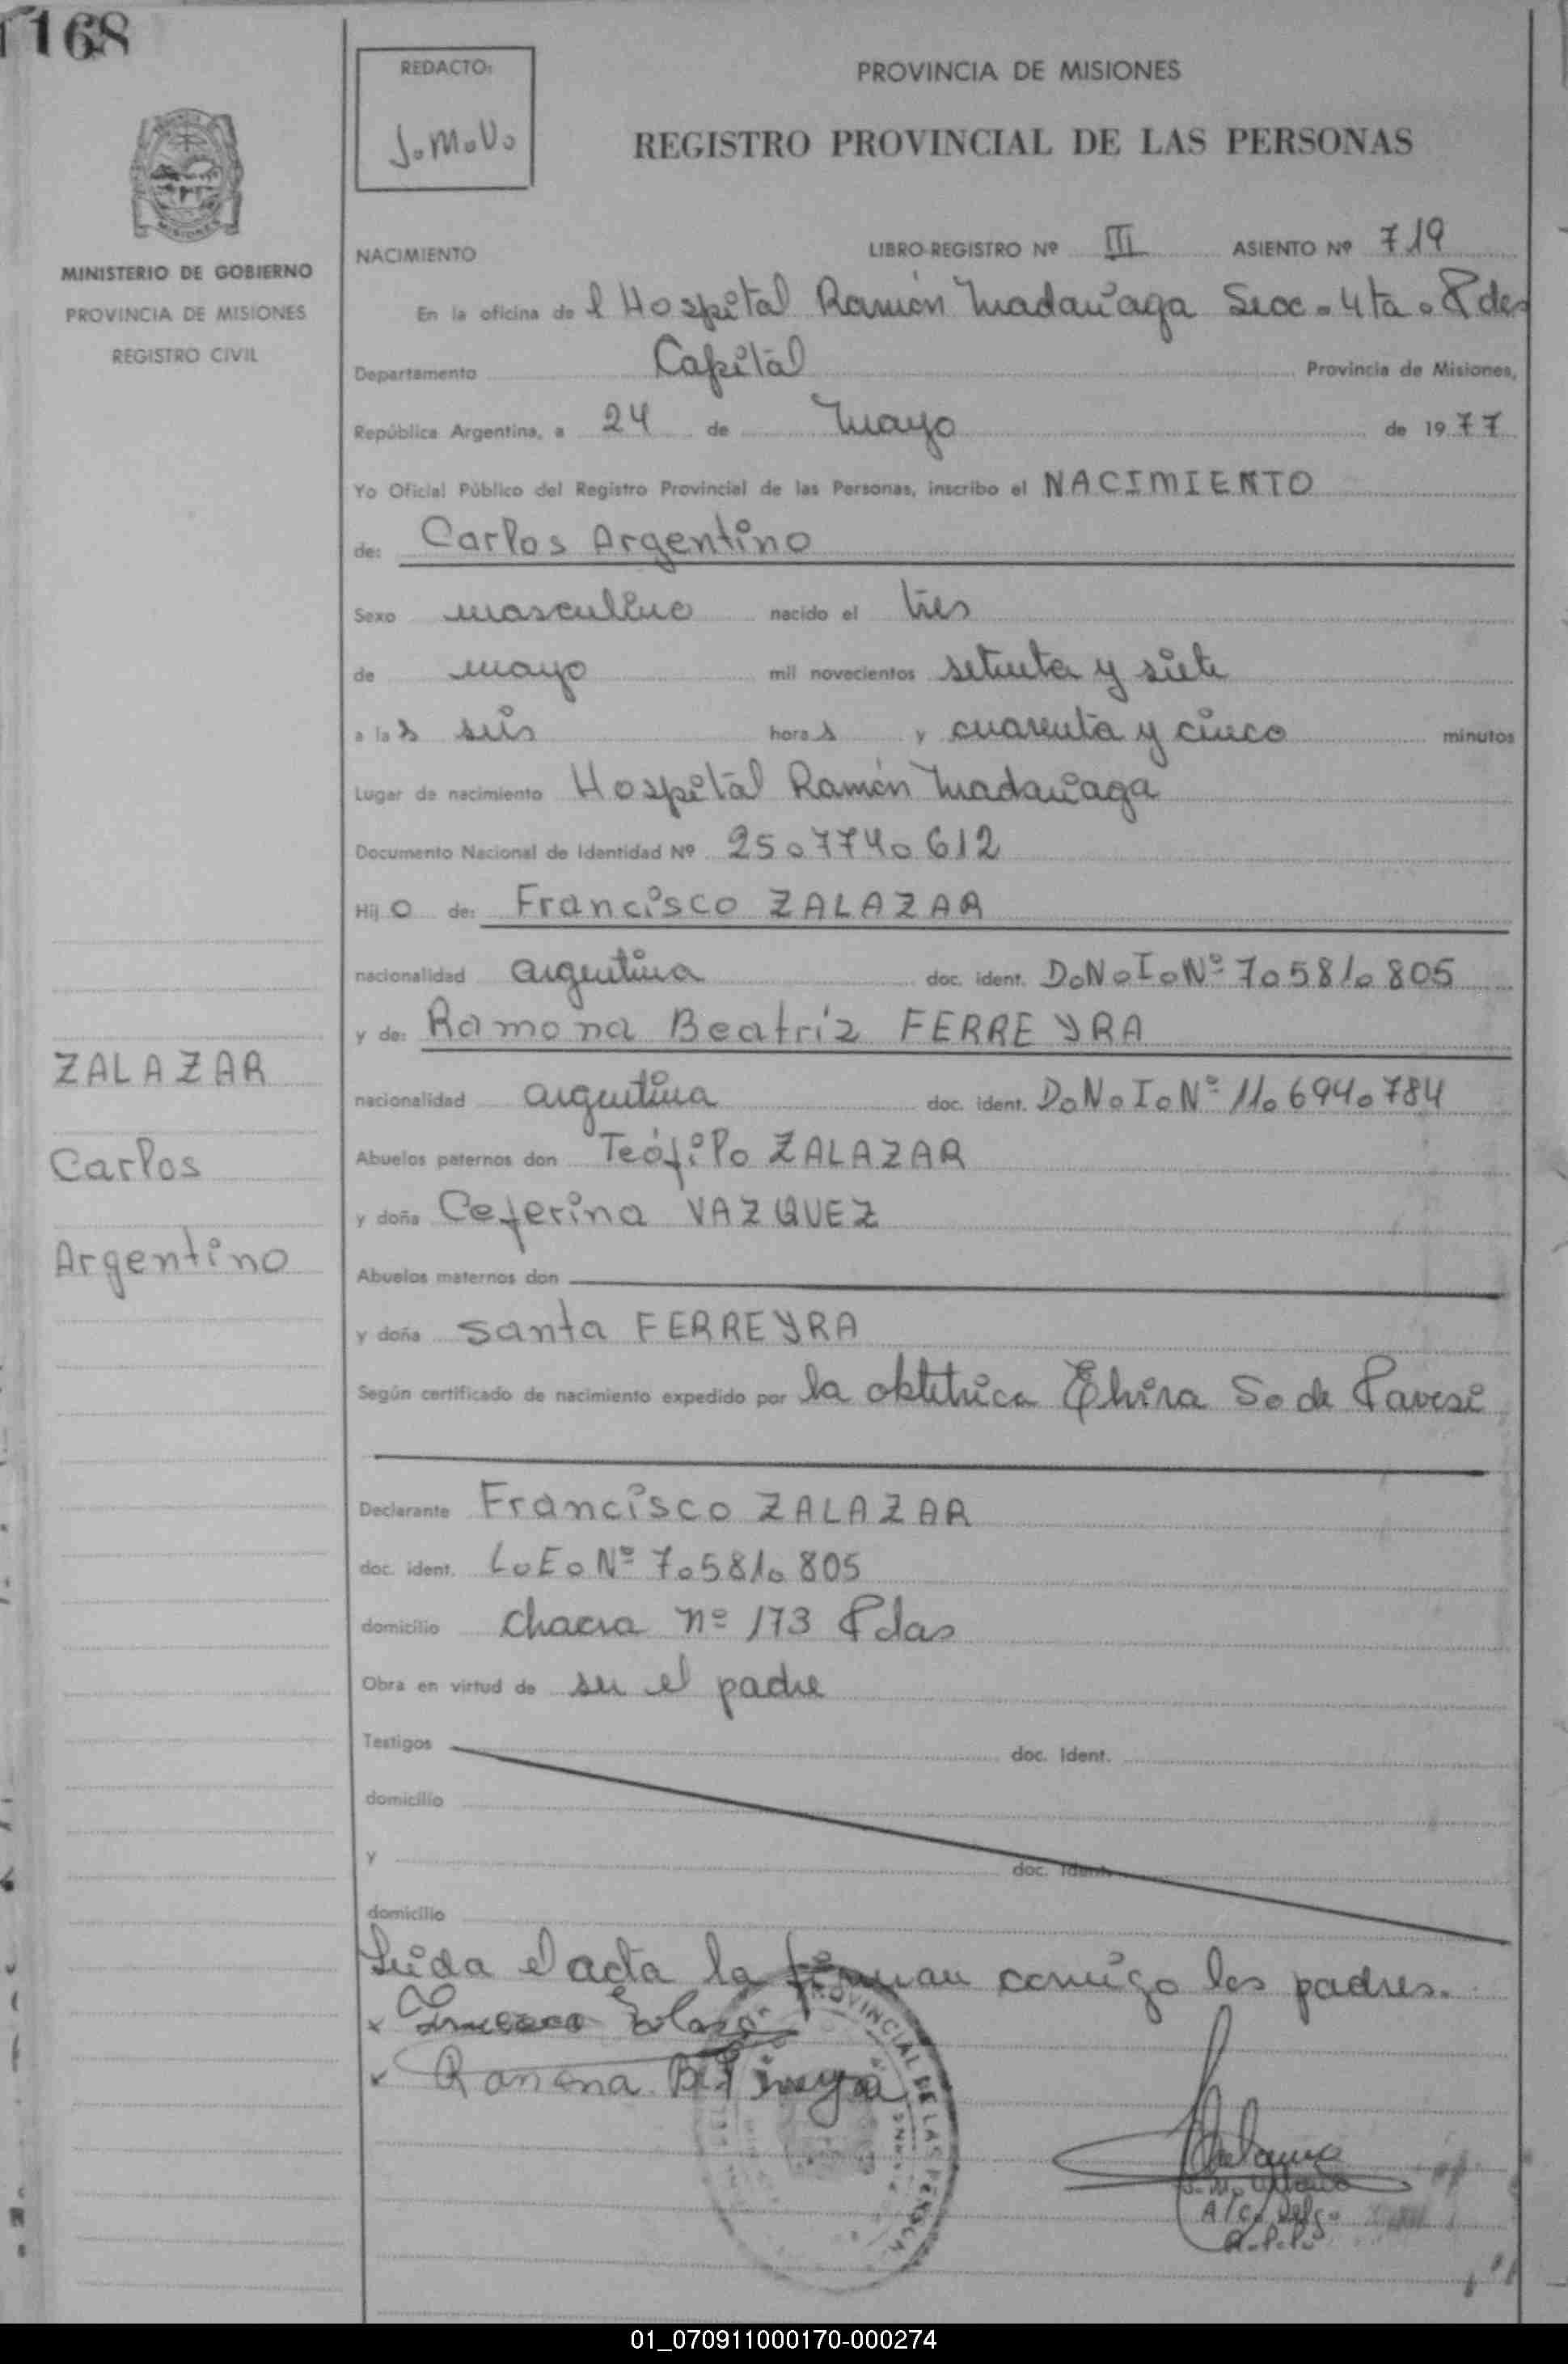 168
REDACTO:
J.M.V.
PROVINCIA DE MISIONES
REGISTRO PROVINCIAL DE LAS PERSONAS
MISIONES
MINISTERIO DE GOBIERNO
PROVINCIA DE MISIONES
REGISTRO CIVIL
NACIMIENTO LIBRO-REGISTRO Nº III ASIENTO Nº 719
En la oficina de l Hospital Ramón Madariaga Secc. 4ta. Pdas
Departamento Capital Provincia de Misiones,
República Argentina, a 24 de Mayo de 1977
Yo Oficial Público del Registro Provincial de las Personas, inscribo el NACIMIENTO
de: Carlos Argentino
Sexo masculino nacido el tres
de mayo mil novecientos setenta y siete
a las seis horas y cuarenta y cinco minutos
Lugar de nacimiento Hospital Ramón Madariaga
Documento Nacional de Identidad Nº 25.774.612
Hijo de: Francisco ZALAZAR
nacionalidad argentina doc. ident. D.N.I.Nº 7.581.805
y de: Ramona Beatriz FERREYRA
nacionalidad argentina doc. ident. D.N.I.Nº 11.694.784
Abuelos paternos don Teófilo ZALAZAR
y doña Ceferina VAZQUEZ
Abuelos maternos don
y doña Santa FERREYRA
Según certificado de nacimiento expedido por la obtetrica Elvira S. de Pavesi
Declarante Francisco ZALAZAR
doc. ident. L.E.Nº 7.581.805
domicilio Chacra nº 173 Pdas
Obra en virtud de ser el padre
Testigos doc. Ident.
domicilio
y doc. Ident.
domicilio
Leida el acta la firman comigo los padres.
x Francisco Zalazar
x Ramona B. Ferreyra
PROVINCIAL DE LAS PERSONAS
ZALAZAR
Carlos
Argentino
01_070911000170-000274